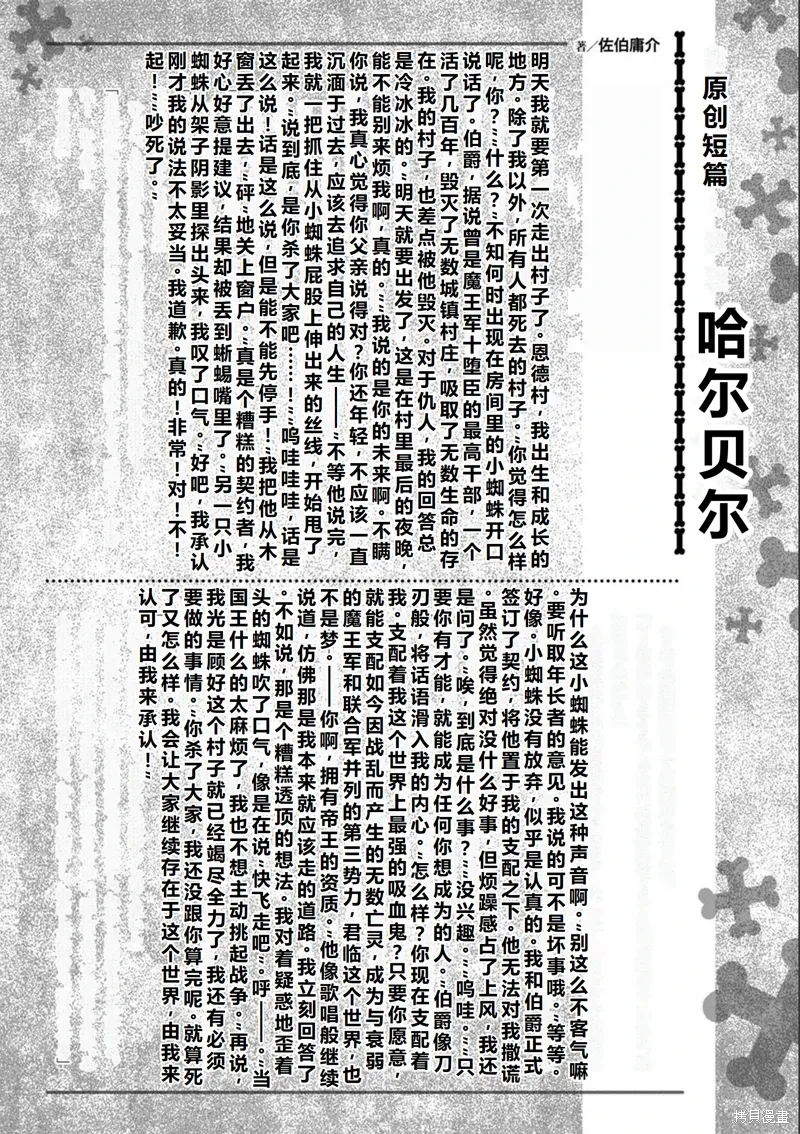 原创短篇
哈尔贝尔
著／佐伯庸介
明天我就要第一次走出村子了。恩德村，我出生和成长的
地方。除了我以外，所有人都死去的村子。“你觉得怎么样
呢，你？”“什么？”不知何时出现在房间里的小蜘蛛开口
说话了。伯爵，据说曾是魔王军十堕臣的最高干部，一个
活了几百年，毁灭了无数城镇村庄，吸取了无数生命的存
在。我的村子，也差点被他毁灭。对于仇人，我的回答总
是冷冰冰的。“明天就要出发了，这是在村里最后的夜晚，
能不能别来烦我啊，真的。”“我说的是你的未来啊。不瞒
你说，我真心觉得你父亲说得对？你还年轻，不应该一直
沉湎于过去，应该去追求自己的人生——”不等他说完，
我就一把抓住从小蜘蛛屁股上伸出来的丝线，开始甩了
起来。“说到底，是你杀了大家吧……！”“呜哇哇哇，话是
这么说！话是这么说，但是能不能先停手！”我把他从木
窗丢了出去，“砰”地关上窗户。“真是个糟糕的契约者，我
好心好意提建议，结果却被丢到蜥蜴嘴里了。”另一只小
蜘蛛从架子阴影里探出头来，我叹了口气。“好吧，我承认
刚才我的说法不太妥当。我道歉。真的！非常！对！不！
起！”“吵死了。”
为什么这小蜘蛛能发出这种声音啊。“别这么不客气嘛
。要听取年长者的意见。我说的可不是坏事哦。”等等。
好像。小蜘蛛没有放弃，似乎是认真的。我和伯爵正式
签订了契约，将他置于我的支配之下。他无法对我撒谎
。虽然觉得绝对没什么好事，但烦躁感占了上风，我还
是问了。“唉，到底是什么事？”“没兴趣。”“呜哇。”“只
要你有才能，就能成为任何你想成为的人。”伯爵像刀
刃般，将话语滑入我的内心。“怎么样？你现在支配着
我。支配着我这个世界上最强的吸血鬼？只要你愿意，
就能支配如今因战乱而产生的无数亡灵，成为与衰弱
的魔王军和联合军并列的第三势力，君临这个世界，也
不是梦。——你啊，拥有帝王的资质。”他像歌唱般继续
说道，仿佛那是我本来就应该走的道路。我立刻回答了
。不如说，那是个糟糕透顶的想法。我对着疑惑地歪着
头的蜘蛛吹了口气，像是在说“快飞走吧”。呼——。“当
国王什么的太麻烦了，我也不想主动挑起战争。”再说，
我光是顾好这个村子就已经竭尽全力了，我还有必须
要做的事情。“你杀了大家，我还没跟你算完呢。就算死
了又怎么样。我会让大家继续存在于这个世界，由我来
认可，由我来承认！”
拷貝漫畫